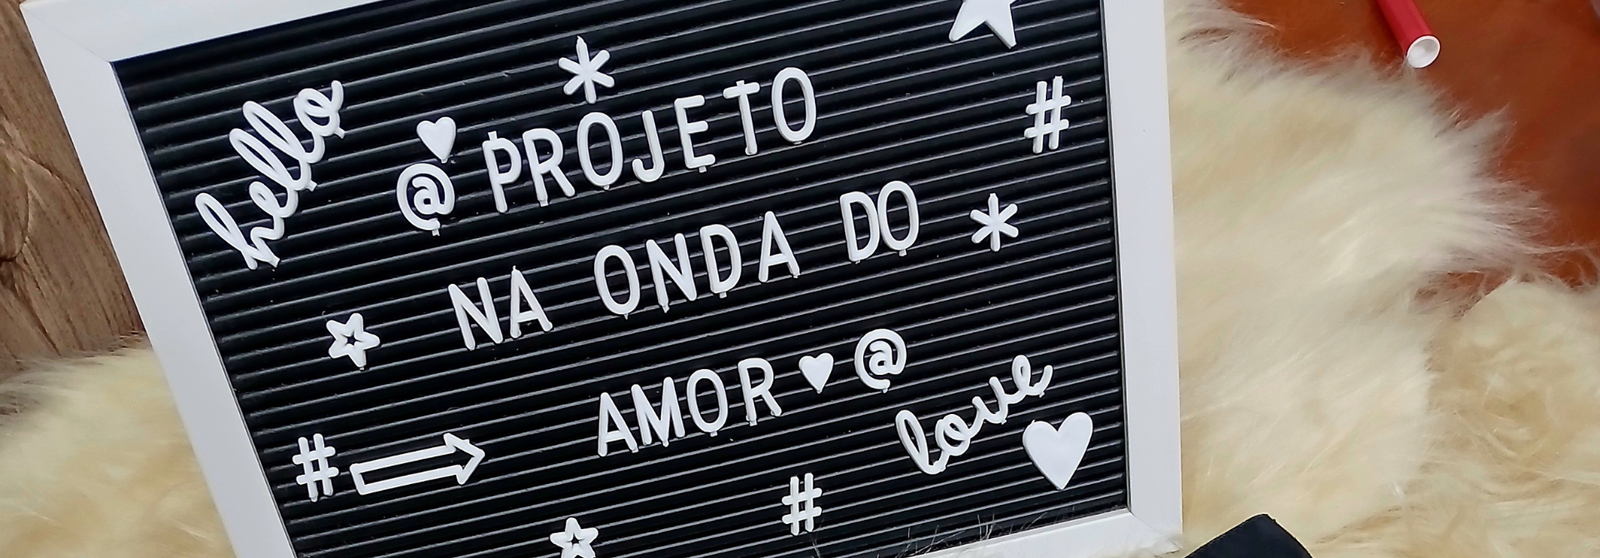 hello
@PROJETO
NA ONDA DO
AMOR♥@
love